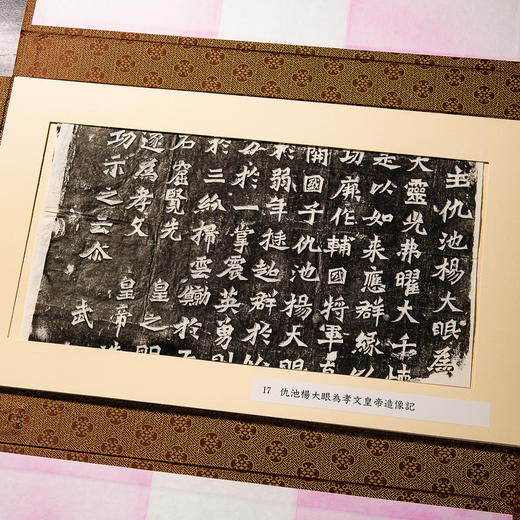 主仇池楊大眼為
大靈光弗曜大千懷
是以如來應群緣以
功厥作輔國將軍直
開國子仇池楊大眼
於弱年挺超群於始
於一掌震英勇則
於三紛掃雲鯨於
石窟覽先皇之明
遂為孝文皇帝造
功示之云尒
武
17 仇池楊大眼為孝文皇帝造像記